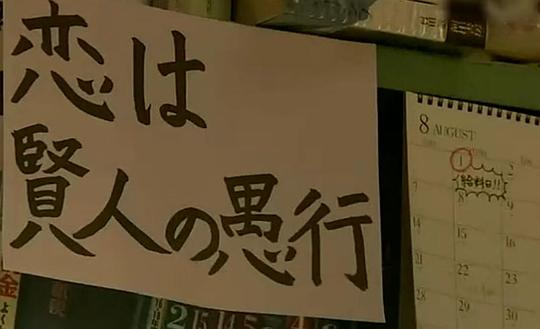 恋は
賢人の愚行
8 AUGUST
1
2
給料日!!
8
9
14
15
16
21
22
23
28
29
30
金